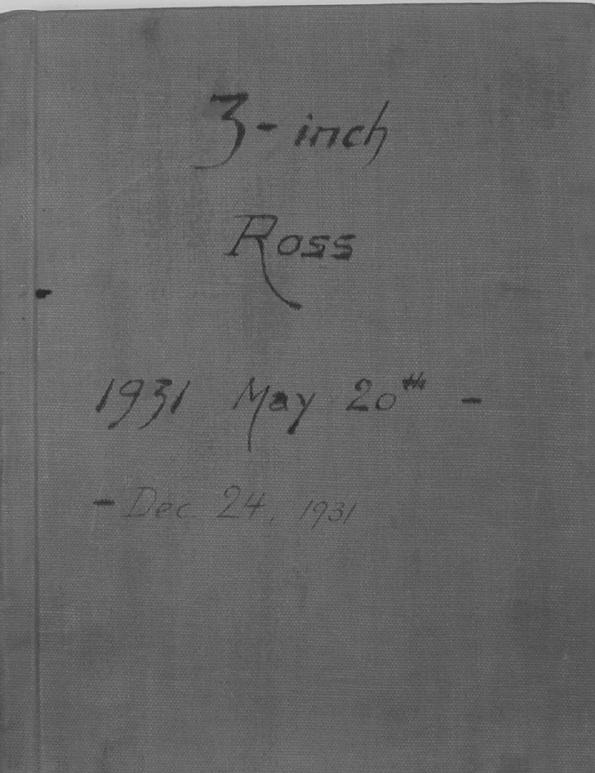 3-inch
Ross
1931 May 20th -
- Dec 24, 1931